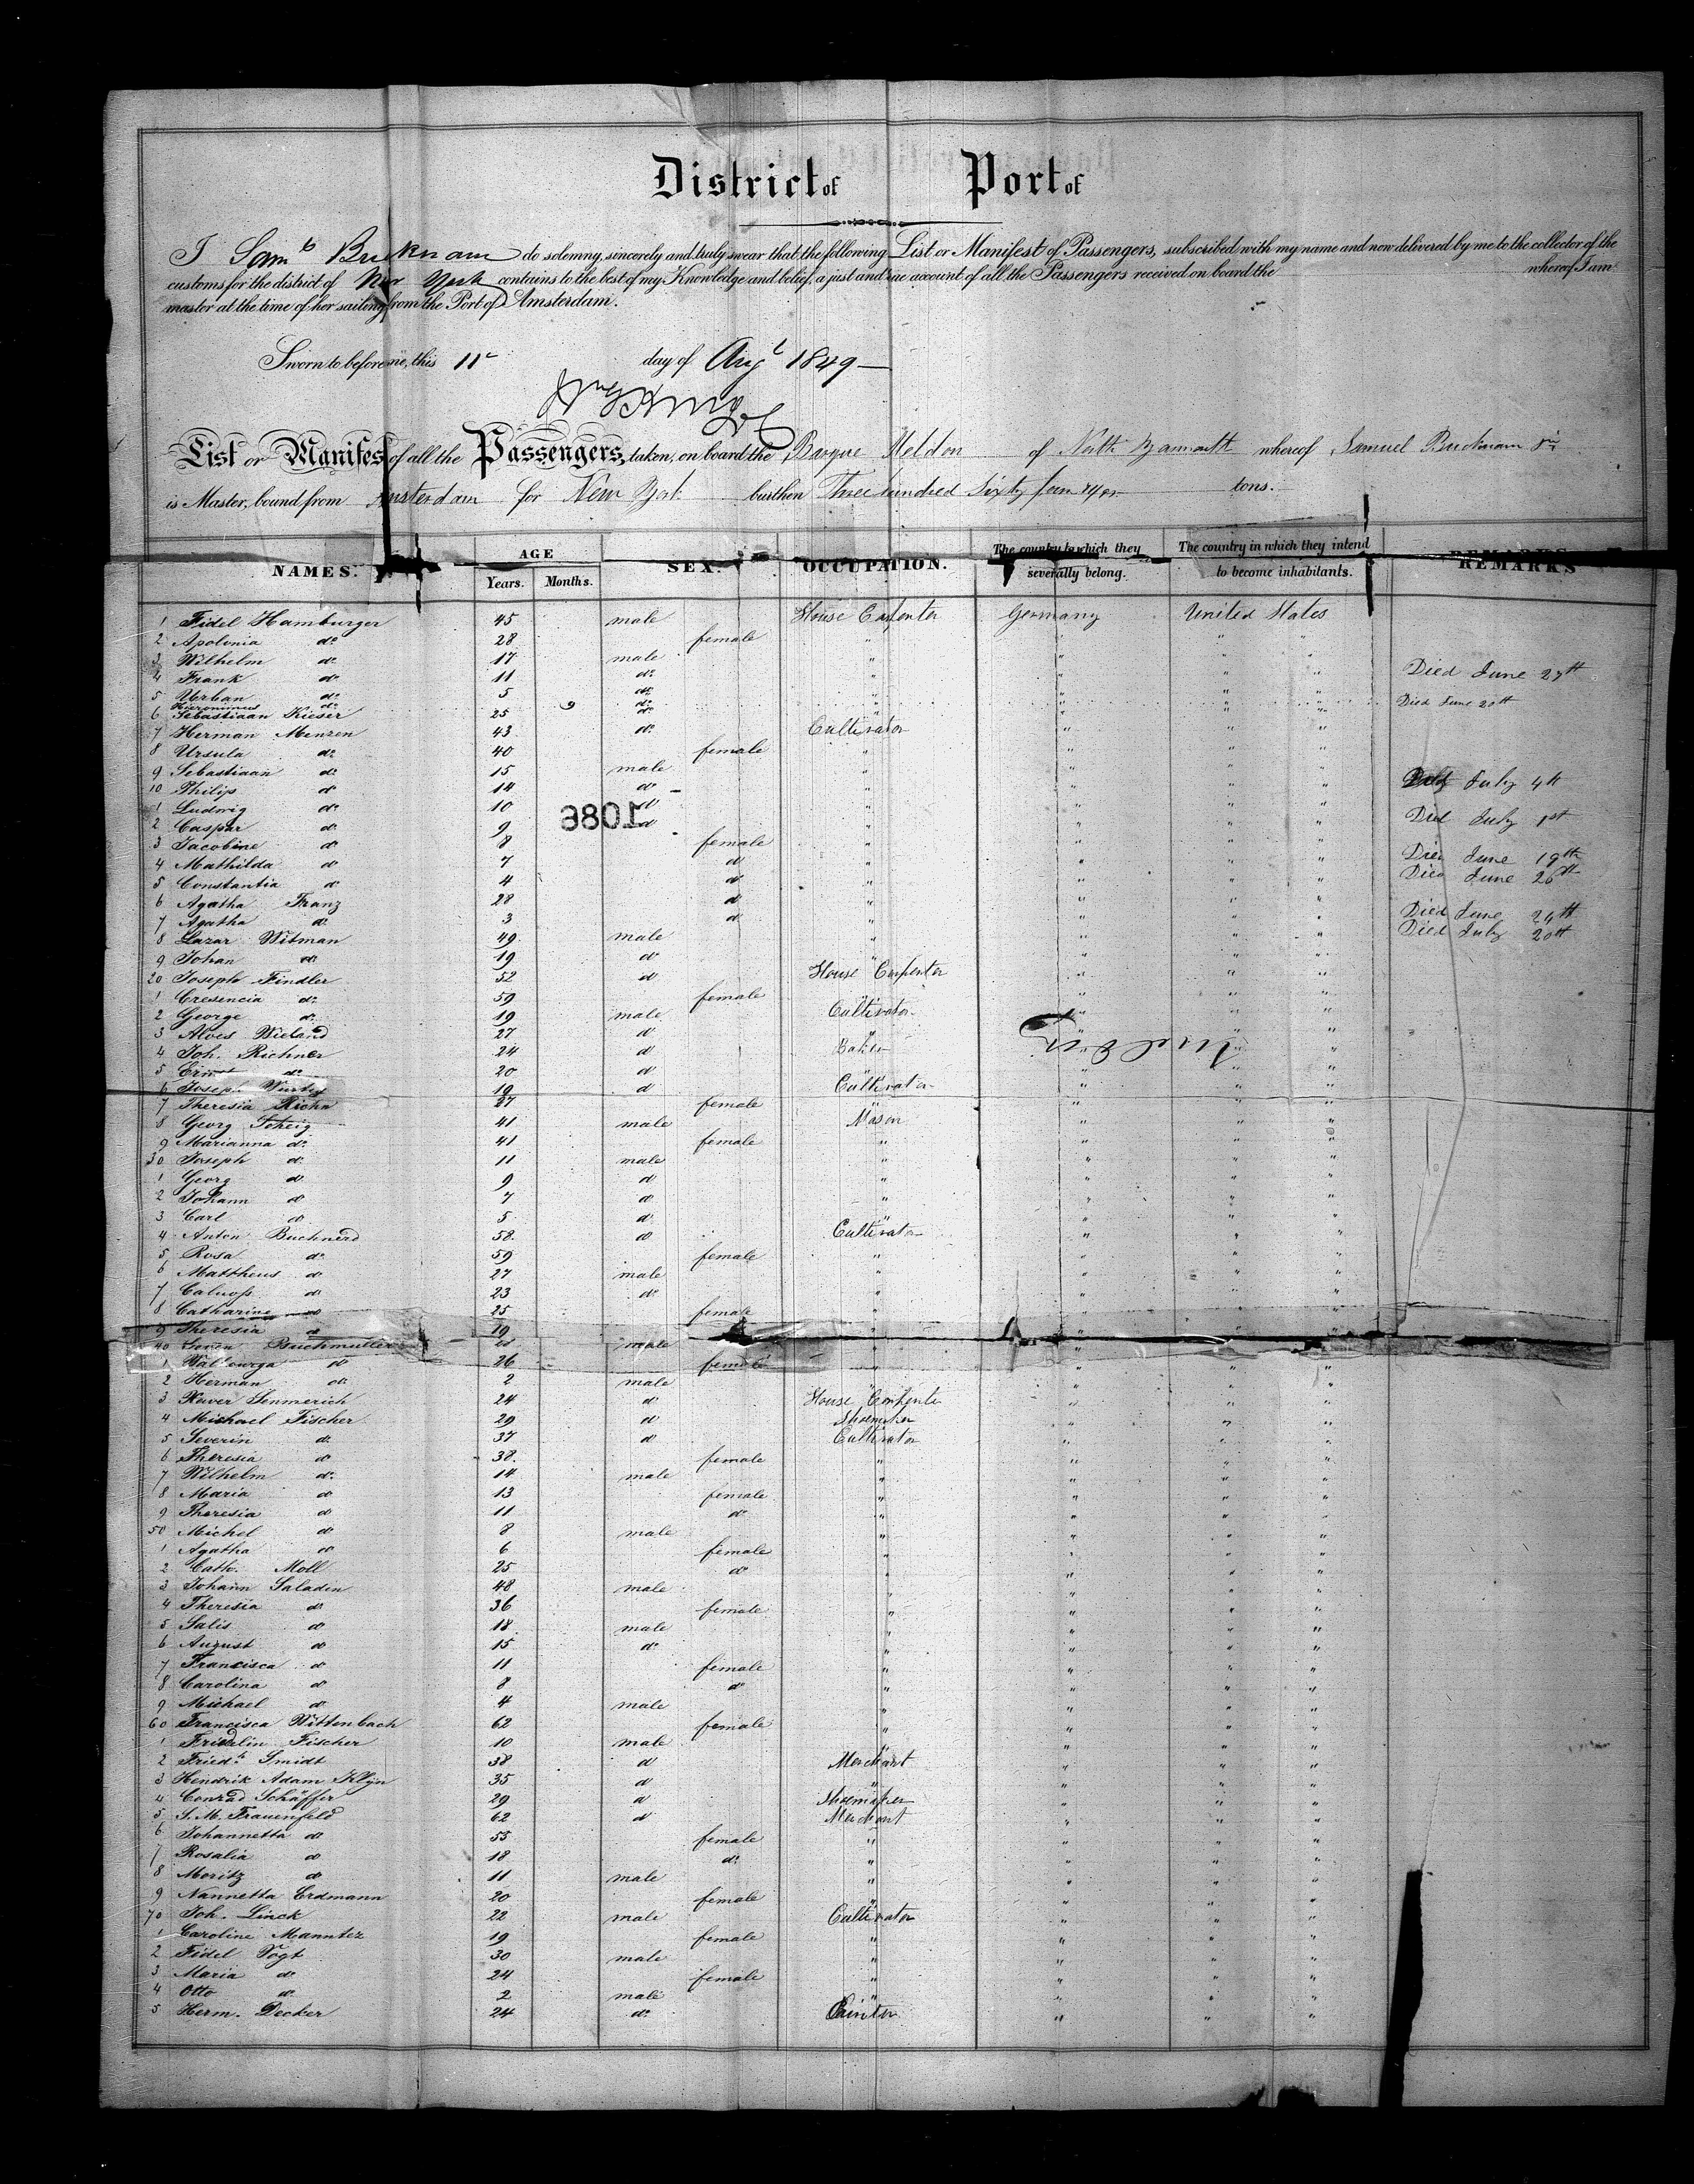 District of Port of
I Sam Bucknam do solemny, sincerely and truly swear that the following List or Manifest of Passengers, subscribed with my name and now delivered by me to the collector of the
customs for the district of New York contains to the best of my Knowledge and belief, a just and true account of all the Passengers received on board the whereof I am
master at the time of her sailing from the Port of Amsterdam.
Sworn to before me, this 11 day of Aug 1849
List or Manifest of all the Passengers, taken, on board the Barque Weldon of North Yarmouth whereof Samuel Bucknam
is Master, bound from Amsterdam for New York burthen Three hundred Sixty four tons.
NAMES. AGE SEX. OCCUPATION. The country to which they The country in which they intend REMARKS
Years. Months. severally belong. to become inhabitants.
1 Fidel Hamburger 45 male House Carpenter Germany United States
2 Apolonia do 28 female " " " "
3 Wilhelm do 17 male " " " "
4 Frank do 11 do " " " " Died June 27th
5 Urban do 5 do " " " "
Hieronimus do 9 do " " " " Died June 20th
6 Sebastiaan Kieser 25 do " " " "
7 Herman Menzen 43 do Cultivator " " "
8 Ursula do 40 female " " " "
9 Sebastiaan do 15 male " " " "
10 Philip do 14 do " " " " Died July 4th
1 Ludwig do 10 do " " " "
1086
2 Caspar do 9 do " " " " Died July 1st
3 Jacobine do 8 female " " " "
4 Mathilda do 7 do " " " " Died June 19th
5 Constantia do 4 do " " " " Died June 26th
6 Agatha Franz 28 do " " " "
7 Agatha do 3 do " " " " Died June 24th
8 Lazar Witman 49 male " " " " Died July 20th
9 Johan do 19 do " " " "
20 Joseph Findler 52 do House Carpenter " " "
1 Cresencia do 59 female " " " "
2 George do 19 male Cultivator " " "
3 Alois Wieland 27 do " " " "
4 Joh. Richner 24 do Baker " " "
5 Ernst do 20 do " " " "
6 Joseph Wurtz 19 do Cultivator " " "
7 Theresia Richn 27 female " " " "
8 Georg Scheig 41 male Mason " " "
9 Marianna do 41 female " " " "
30 Joseph do 11 male " " " "
1 Georg do 9 do " " " "
2 Johann do 7 do " " " "
3 Carl do 5 do " " " "
4 Anton Buchnerd 58 do Cultivator " " "
5 Rosa do 59 female " " " "
6 Mattheus do 27 male " " " "
7 do 23 do " " " "
8 Catharine do 25 female " " " "
9 Theresia do 19 " " " "
40 Buchmuller male " " " "
1 Walburga do 26 female " " " "
2 Herman do 2 male " " " "
3 Xaver Senmerich 24 do House Carpenter " " "
4 Michael Fischer 29 do Shoemaker " " "
5 Severin do 37 do Cultivator " " "
6 Theresia do 38 female " " " "
7 Wilhelm do 14 male " " " "
8 Maria do 13 female " " " "
9 Theresia do 11 do " " " "
50 Michel do 8 male " " " "
1 Agatha do 6 female " " " "
2 Cath. Moll 25 do " " " "
3 Johann Saladin 48 male " " " "
4 Theresia do 36 female " " " "
5 Salis do 18 male " " " "
6 August do 15 do " " " "
7 Francisca do 11 female " " " "
8 Carolina do 8 do " " " "
9 Michael do 4 male " " " "
60 Francisca Wittenbach 62 female " " " "
1 Fridolin Fischer 10 male " " " "
2 Fried. Smidt 38 do Merchant " " "
3 Hendrik Adam Klijn 35 do " " " "
4 Conrad Schäffer 29 do Shoemaker " " "
5 S. M. Frauenfeld 62 do Merchant " " "
6 Johannetta do 55 female " " " "
7 Rosalia do 18 do " " " "
8 Moritz do 11 male " " " "
9 Nannetta Erdmann 20 female " " " "
70 Joh. Linck 22 male Cultivator " " "
1 Caroline Manntez 19 female " " " "
2 Fidel Vogt 30 male " " " "
3 Maria do 24 female " " " "
4 Otto do 2 male " " " "
5 Herm. Decker 24 do Painter " " "